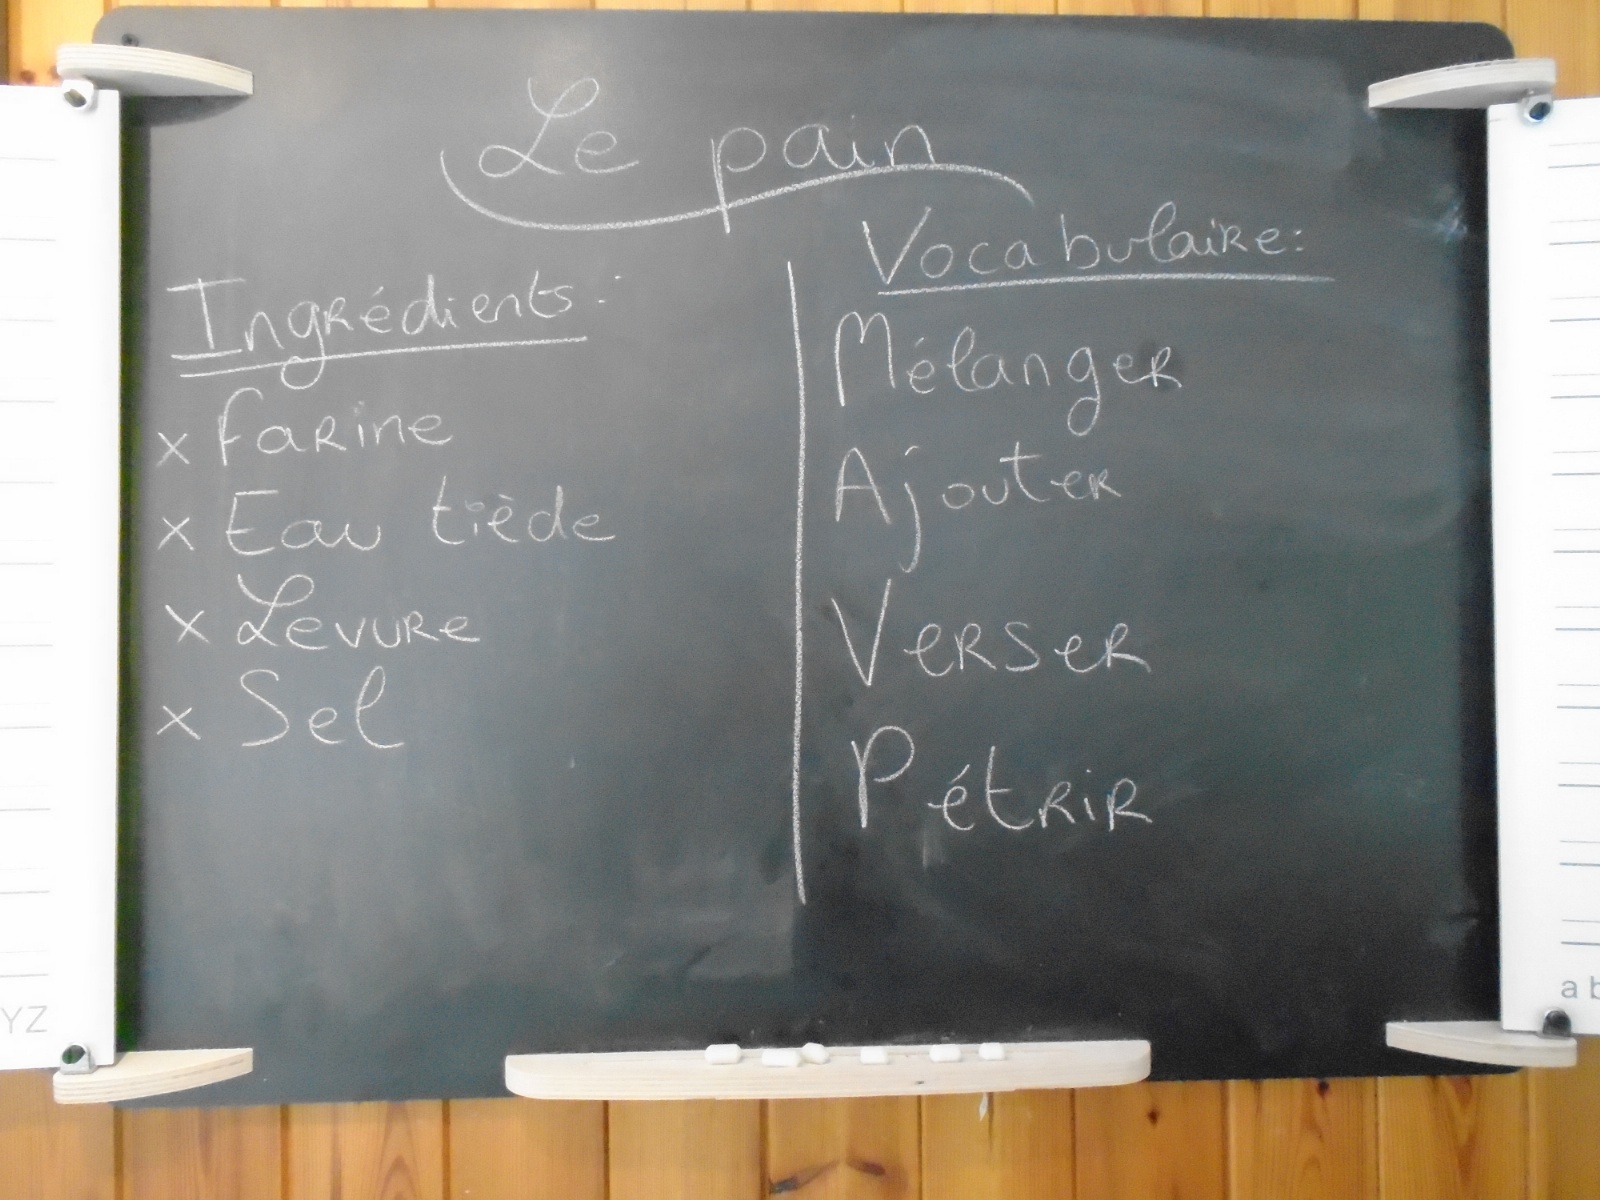 Le pain
Ingrédients :
x farine
x Eau tiède
x Levure
x Sel
Vocabulaire :
Mélanger
Ajouter
Verser
Pétrir
YZ
a b